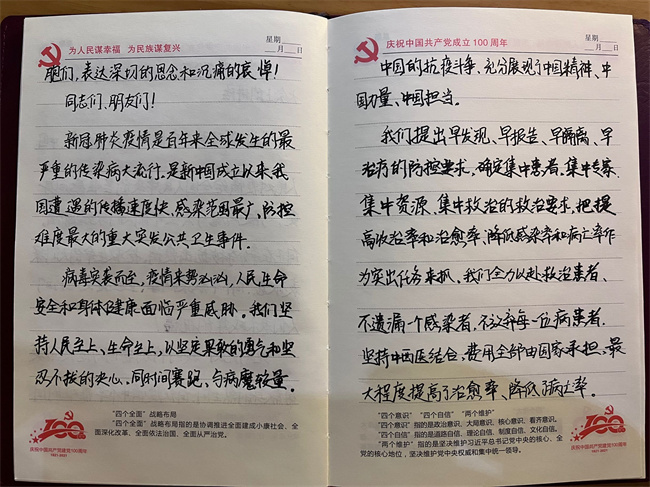 为人民谋幸福 为民族谋复兴
星期
月 日
胞们,表达深切的思念和沉痛的哀悼!
同志们、朋友们!
新冠肺炎疫情是百年来全球发生的最
严重的传染病大流行,是新中国成立以来我
国遭遇的传播速度快、感染范围最广、防控
难度最大的重大突发公共卫生事件。
病毒突袭而至,疫情来势汹汹,人民生命
安全和身体健康面临严重威胁。我们坚
持人民至上、生命至上,以坚定果敢的勇气和坚
忍不拔的决心,同时间赛跑、与病魔较量。
"四个全面"战略布局
"四个全面"战略布局指的是协调推进全面建成小康社会、全
面深化改革、全面依法治国、全面从严治党。
100
庆祝中国共产党建党100周年
1921-2021
庆祝中国共产党成立100周年
星期
月 日
中国的抗疫斗争,充分展现了中国精神、中
国力量、中国担当。
我们提出早发现、早报告、早隔离、早
治疗的防控要求,确定集中患者、集中专家、
集中资源、集中救治的救治要求,把提
高收治率和治愈率、降低感染率和病亡率作
为突出任务来抓。我们全力以赴救治患者、
不遗漏一个感染者,不放弃每一位病患者,
坚持中西医结合,费用全部由国家承担,最
大程度提高了治愈率、降低了病亡率。
"四个意识" "四个自信" "两个维护"
"四个意识"指的是政治意识、大局意识、核心意识、看齐意识。
"四个自信"指的是道路自信、理论自信、制度自信、文化自信。
"两个维护"指的是坚决维护习近平总书记党中央的核心、全
党的核心地位,坚决维护党中央权威和集中统一领导。
100
庆祝中国共产党建党100周年
1921-2021